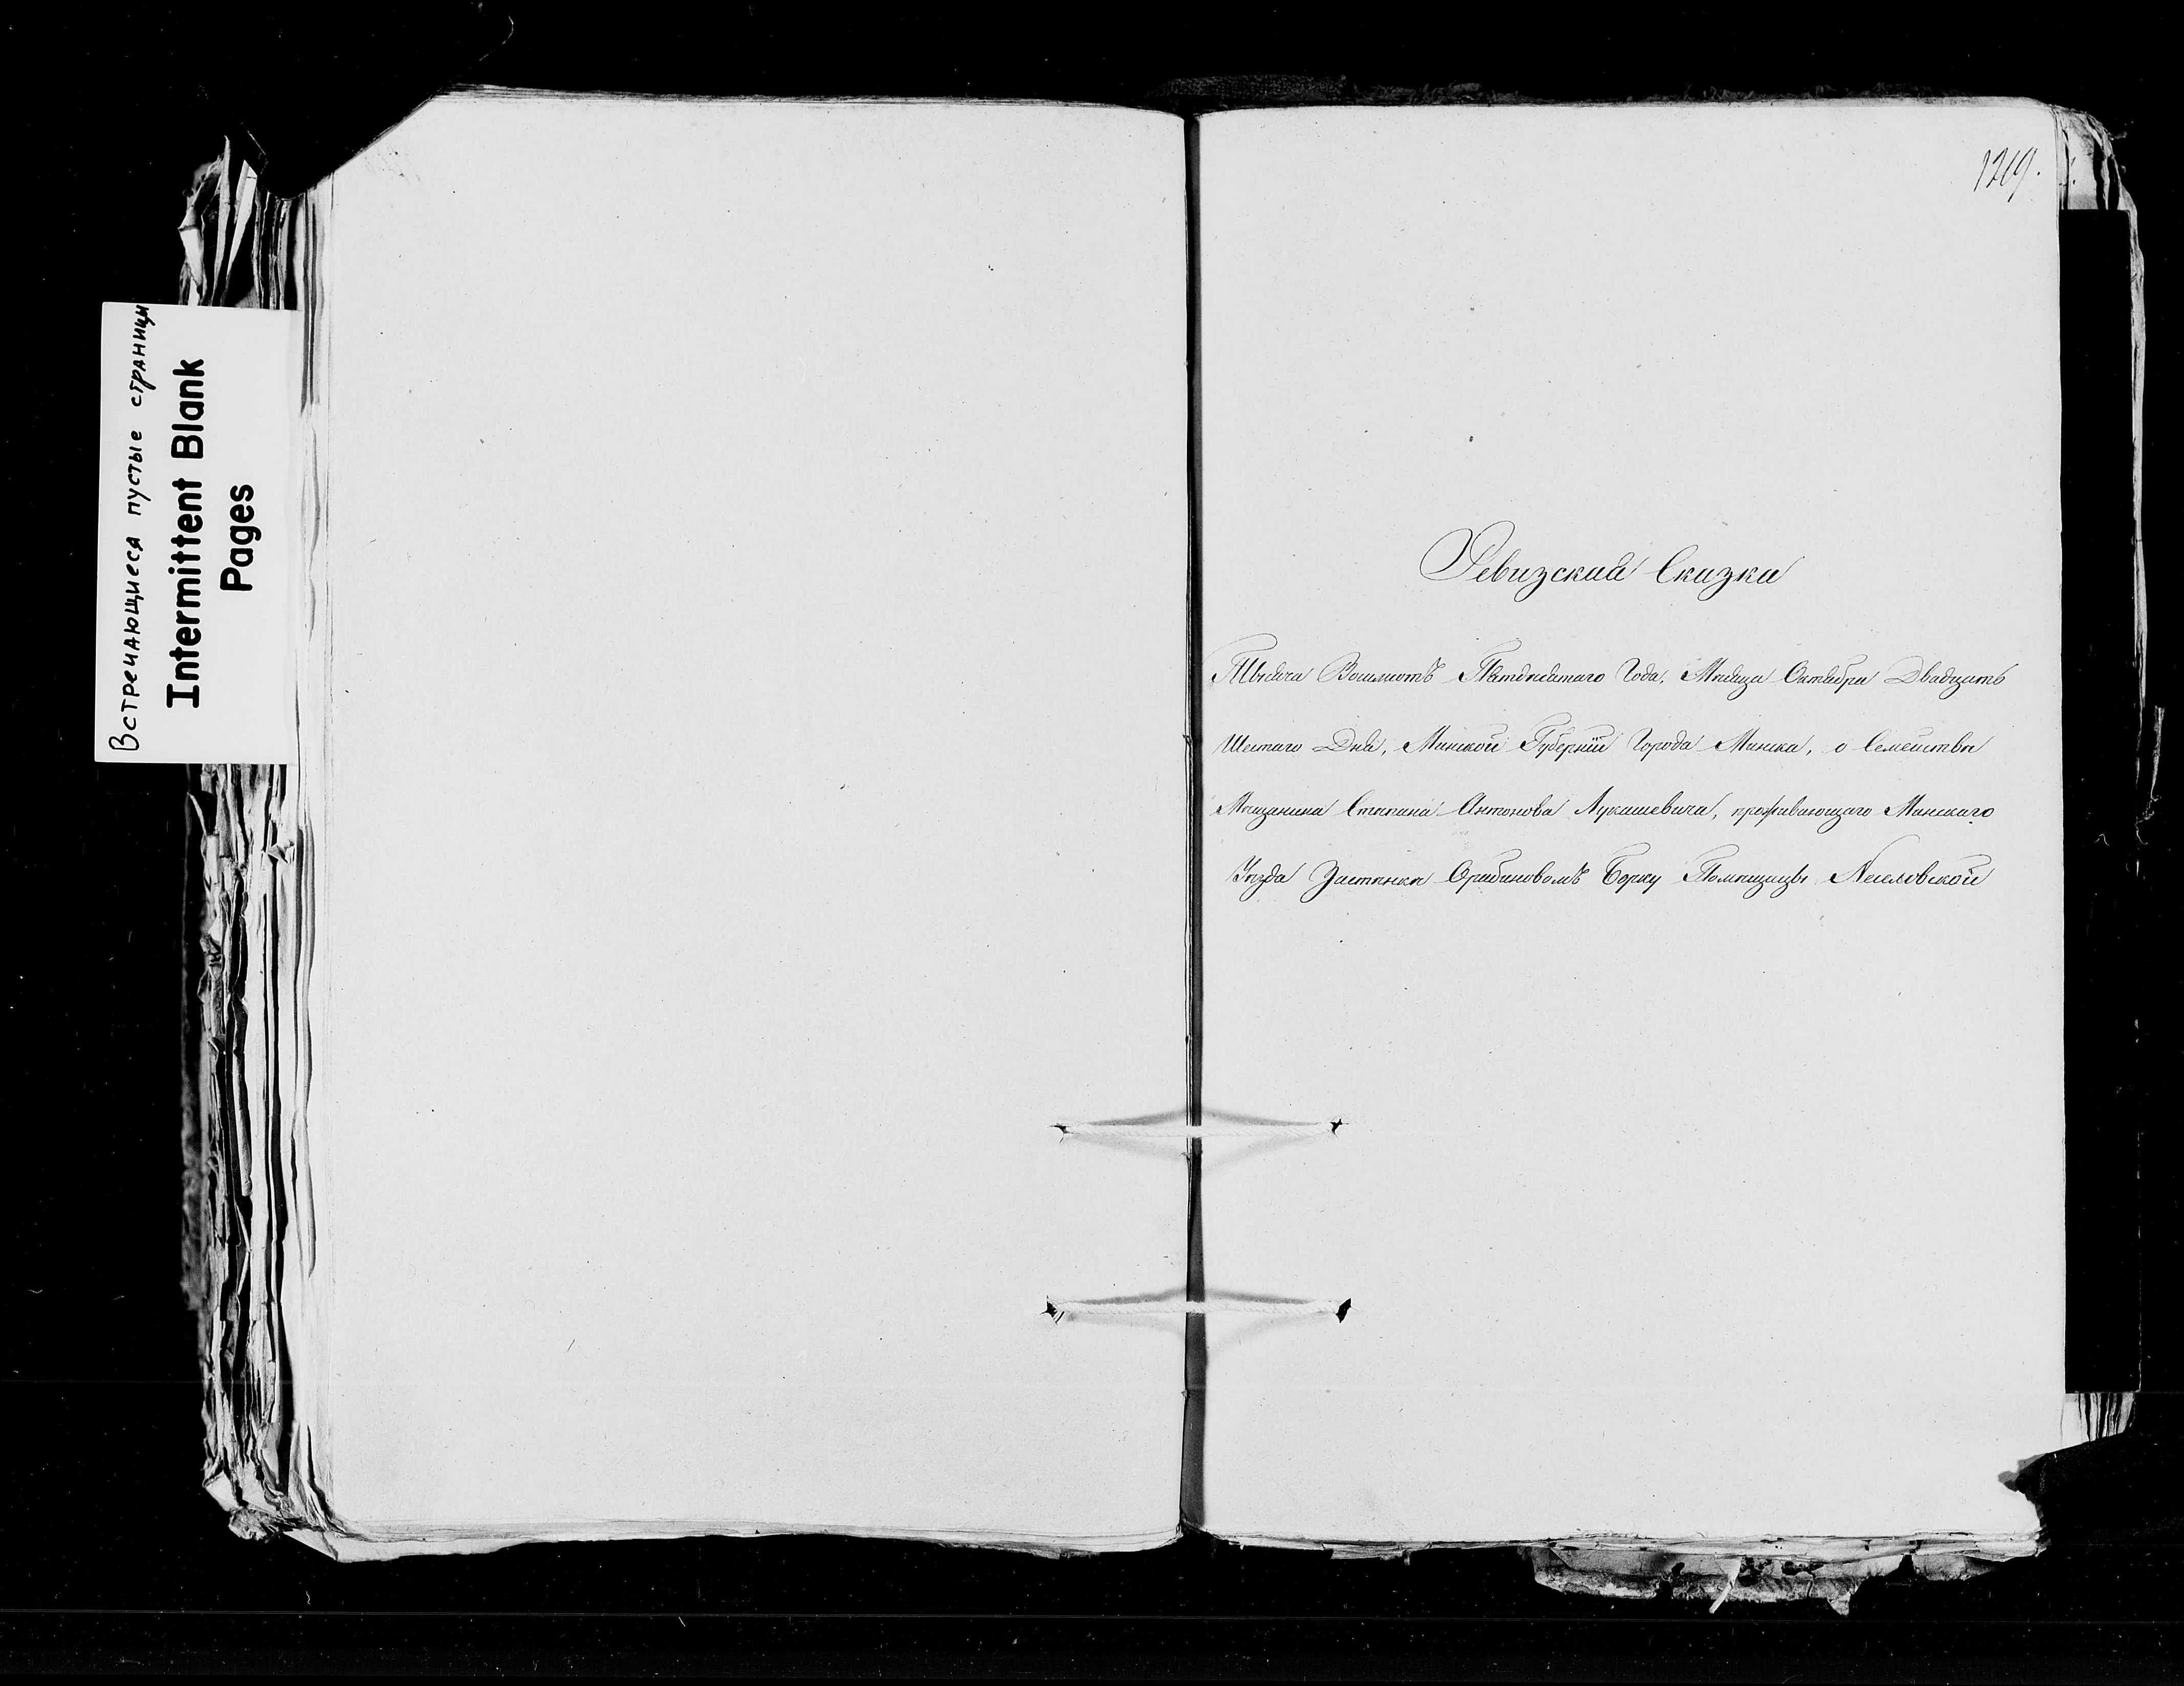 Встречающиеся пустые страници
Intermittent Blank
Pages
1269.
Ревизская Сказка
Тысяча Восмсотъ Пятдесятаго Года, Месяца Октября Двадцать
Шестаго Дня, Минской Губерніи Города Минска, о Семействе
Мещанина Степана Антонова Лукашевича, проживающаго Минскаго
Уезда Застенке Борку Помещицы